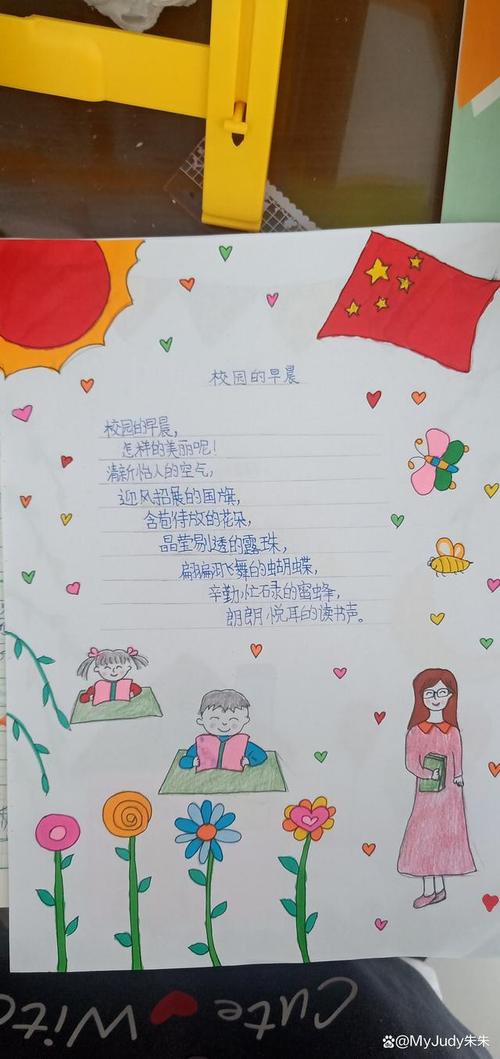 校园的早晨
校园的早晨，
怎样的美丽呢！
清新怡人的空气，
迎风招展的国旗，
含苞待放的花朵，
晶莹剔透的露珠，
翩翩飞舞的蝴蝶，
辛勤忙碌的蜜蜂，
朗朗悦耳的读书声。
Cute ♥ Witc
@MyJudy朱朱